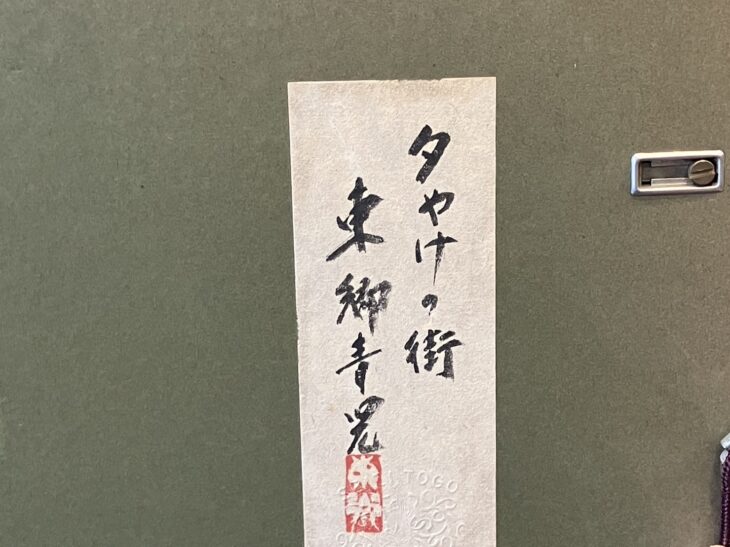 夕やけの街
東郷青児
東郷
TOGO